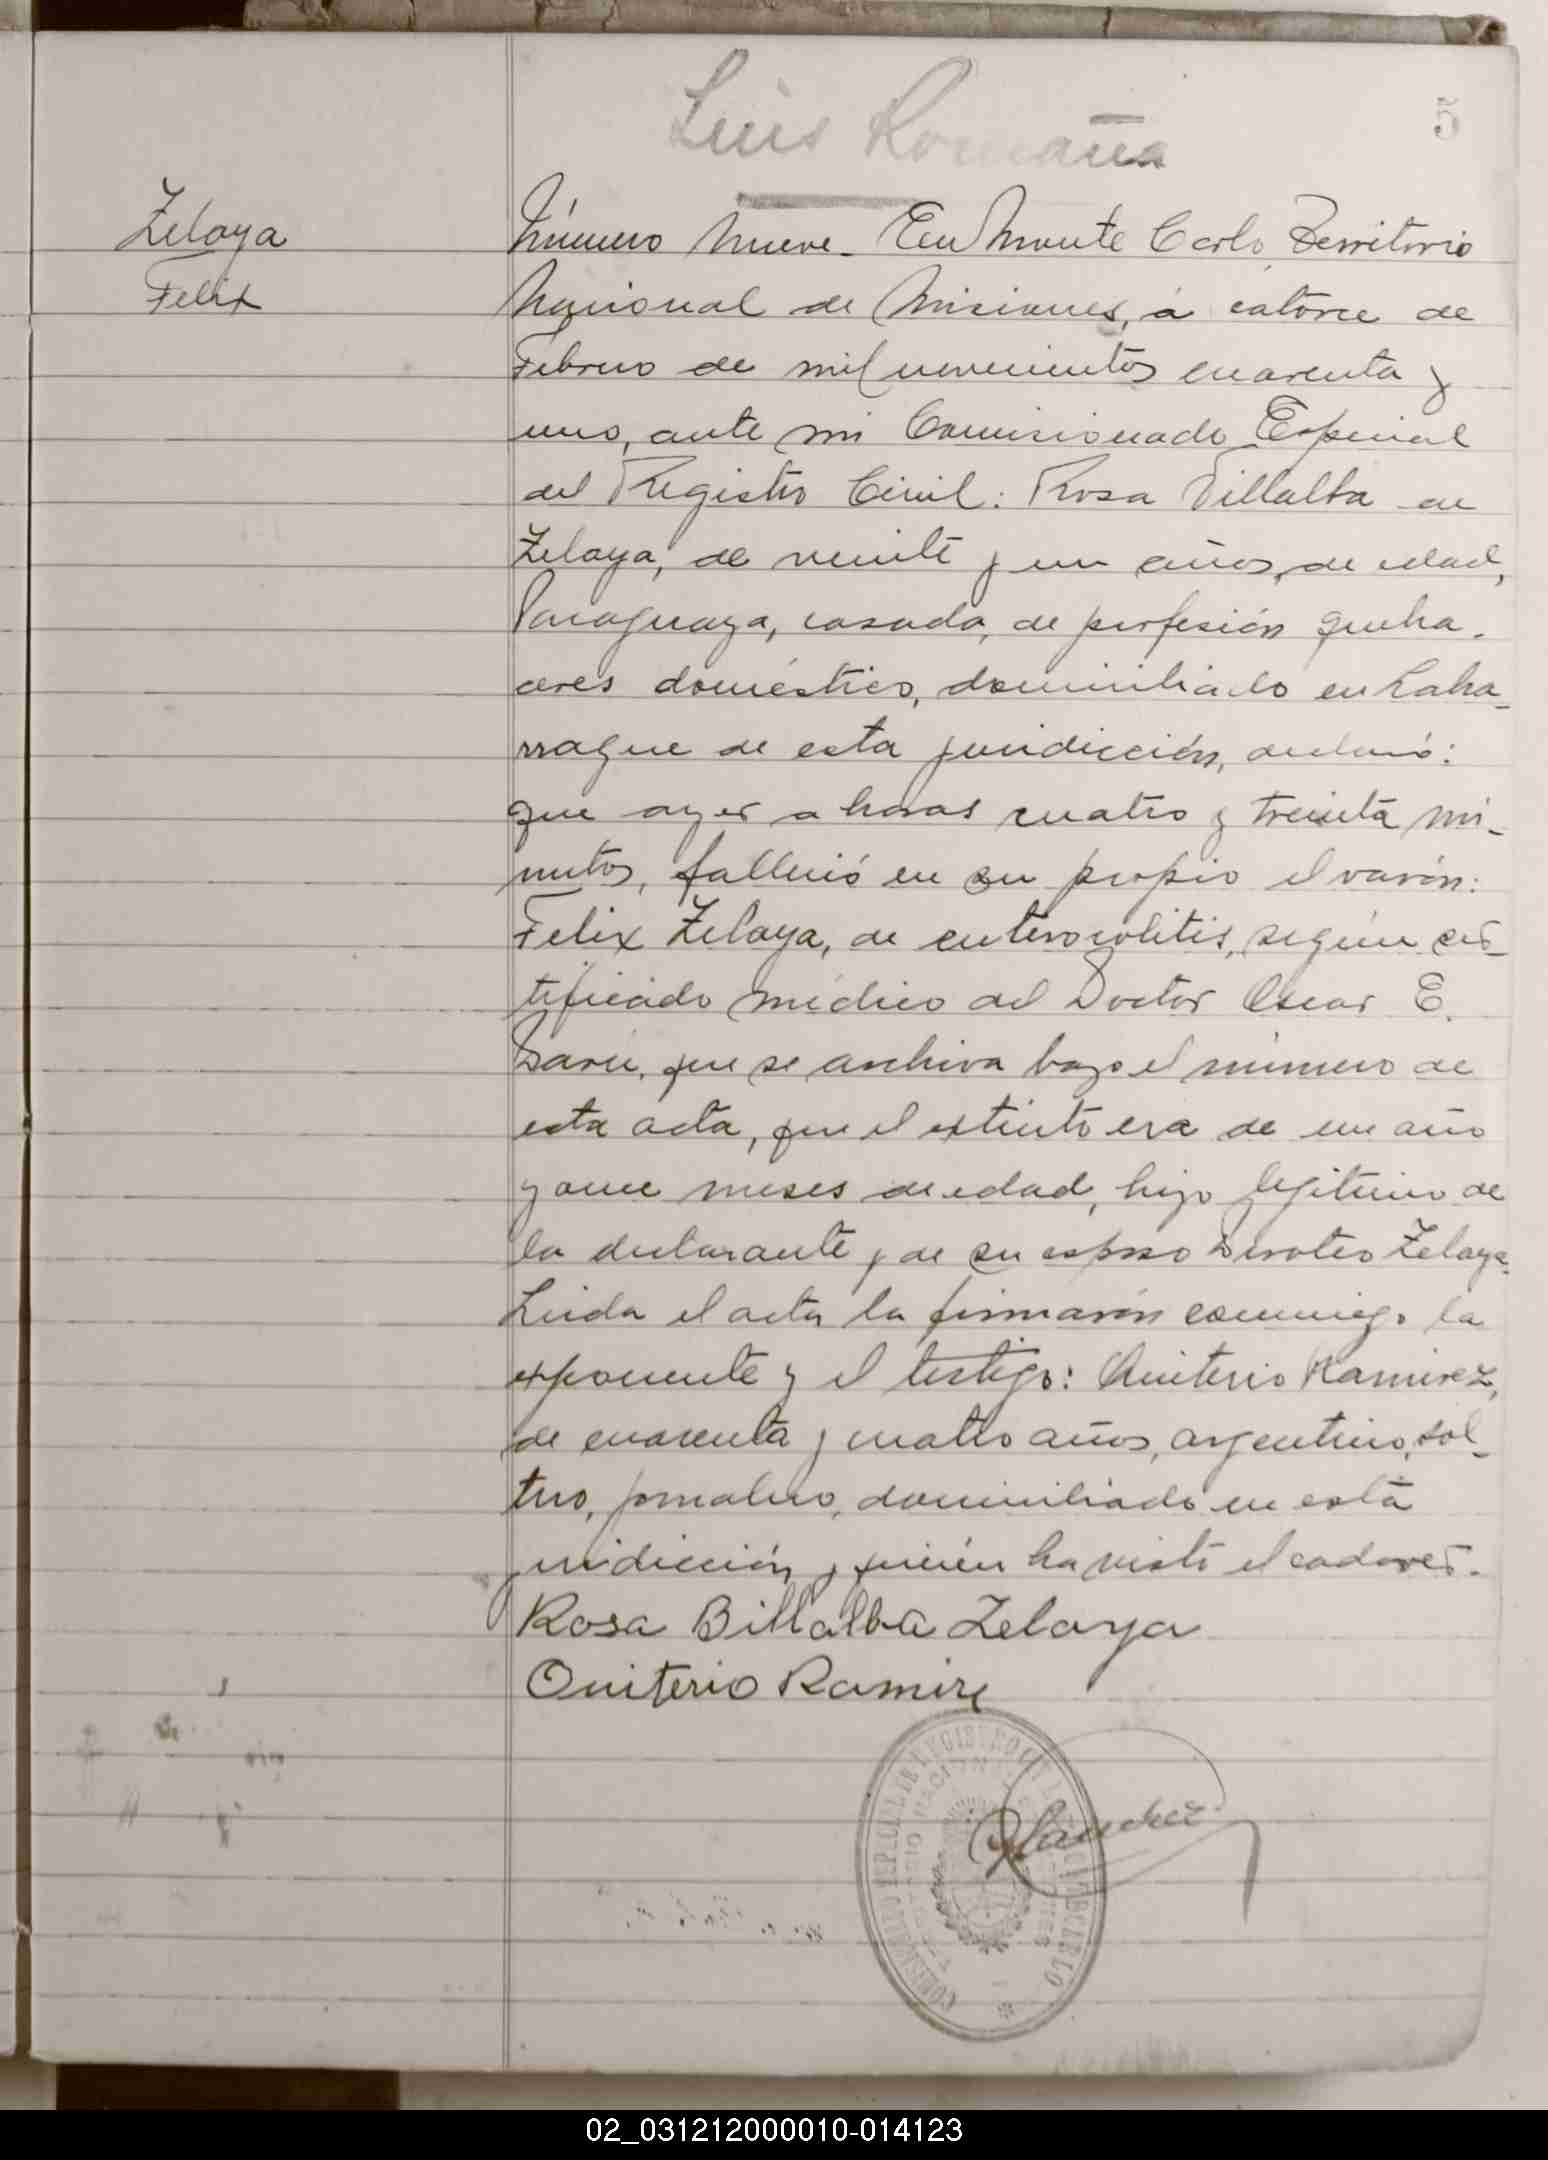 Luis Romaña
5
Zelaya
Felix
Número nueve - En Monte Carlo, Territorio
Nacional de Misiones, á catorce de
Febrero de mil novecientos cuarenta y
uno, ante mi Comisionado Especial
del Registro Civil: Rosa Villalba de
Zelaya, de veinte y un años, de edad,
Paraguaya, casada, de profesión queha-
ceres doméstico, domiciliado en Laha-
rrague de esta juridicción, declaró:
que ayer a horas cuatro y treinta mi-
nutos, falleció en su propio el varón:
Felix Zelaya, de enterocolitis, según cer-
tificado médico del Doctor Oscar E.
Darú, que se archiva bajo el número de
esta acta, que el extinto era de un año
y once meses de edad, hijo legitimo de
la declarante y de su esposo Doroteo Zelaya.
Leida el acta la firmarón conmigo la
exponente y el testigo: Quiterio Ramirez,
de cuarenta y cuatro años, argentino, sol-
tero, jornalero, domiciliado en esta
juridicción y quién ha visto el cadaver.
Rosa Billalba Zelaya
Quiterio Ramire
Sanchez
02_031212000010-014123